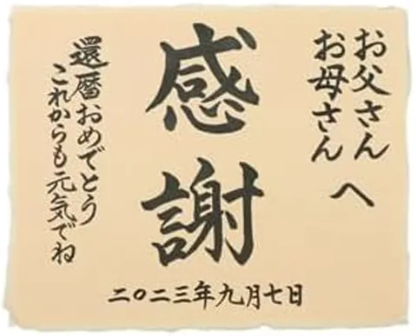 お父さん
お母さん
へ
感謝
還暦おめでとう
これからも元気でね
二〇二三年九月七日